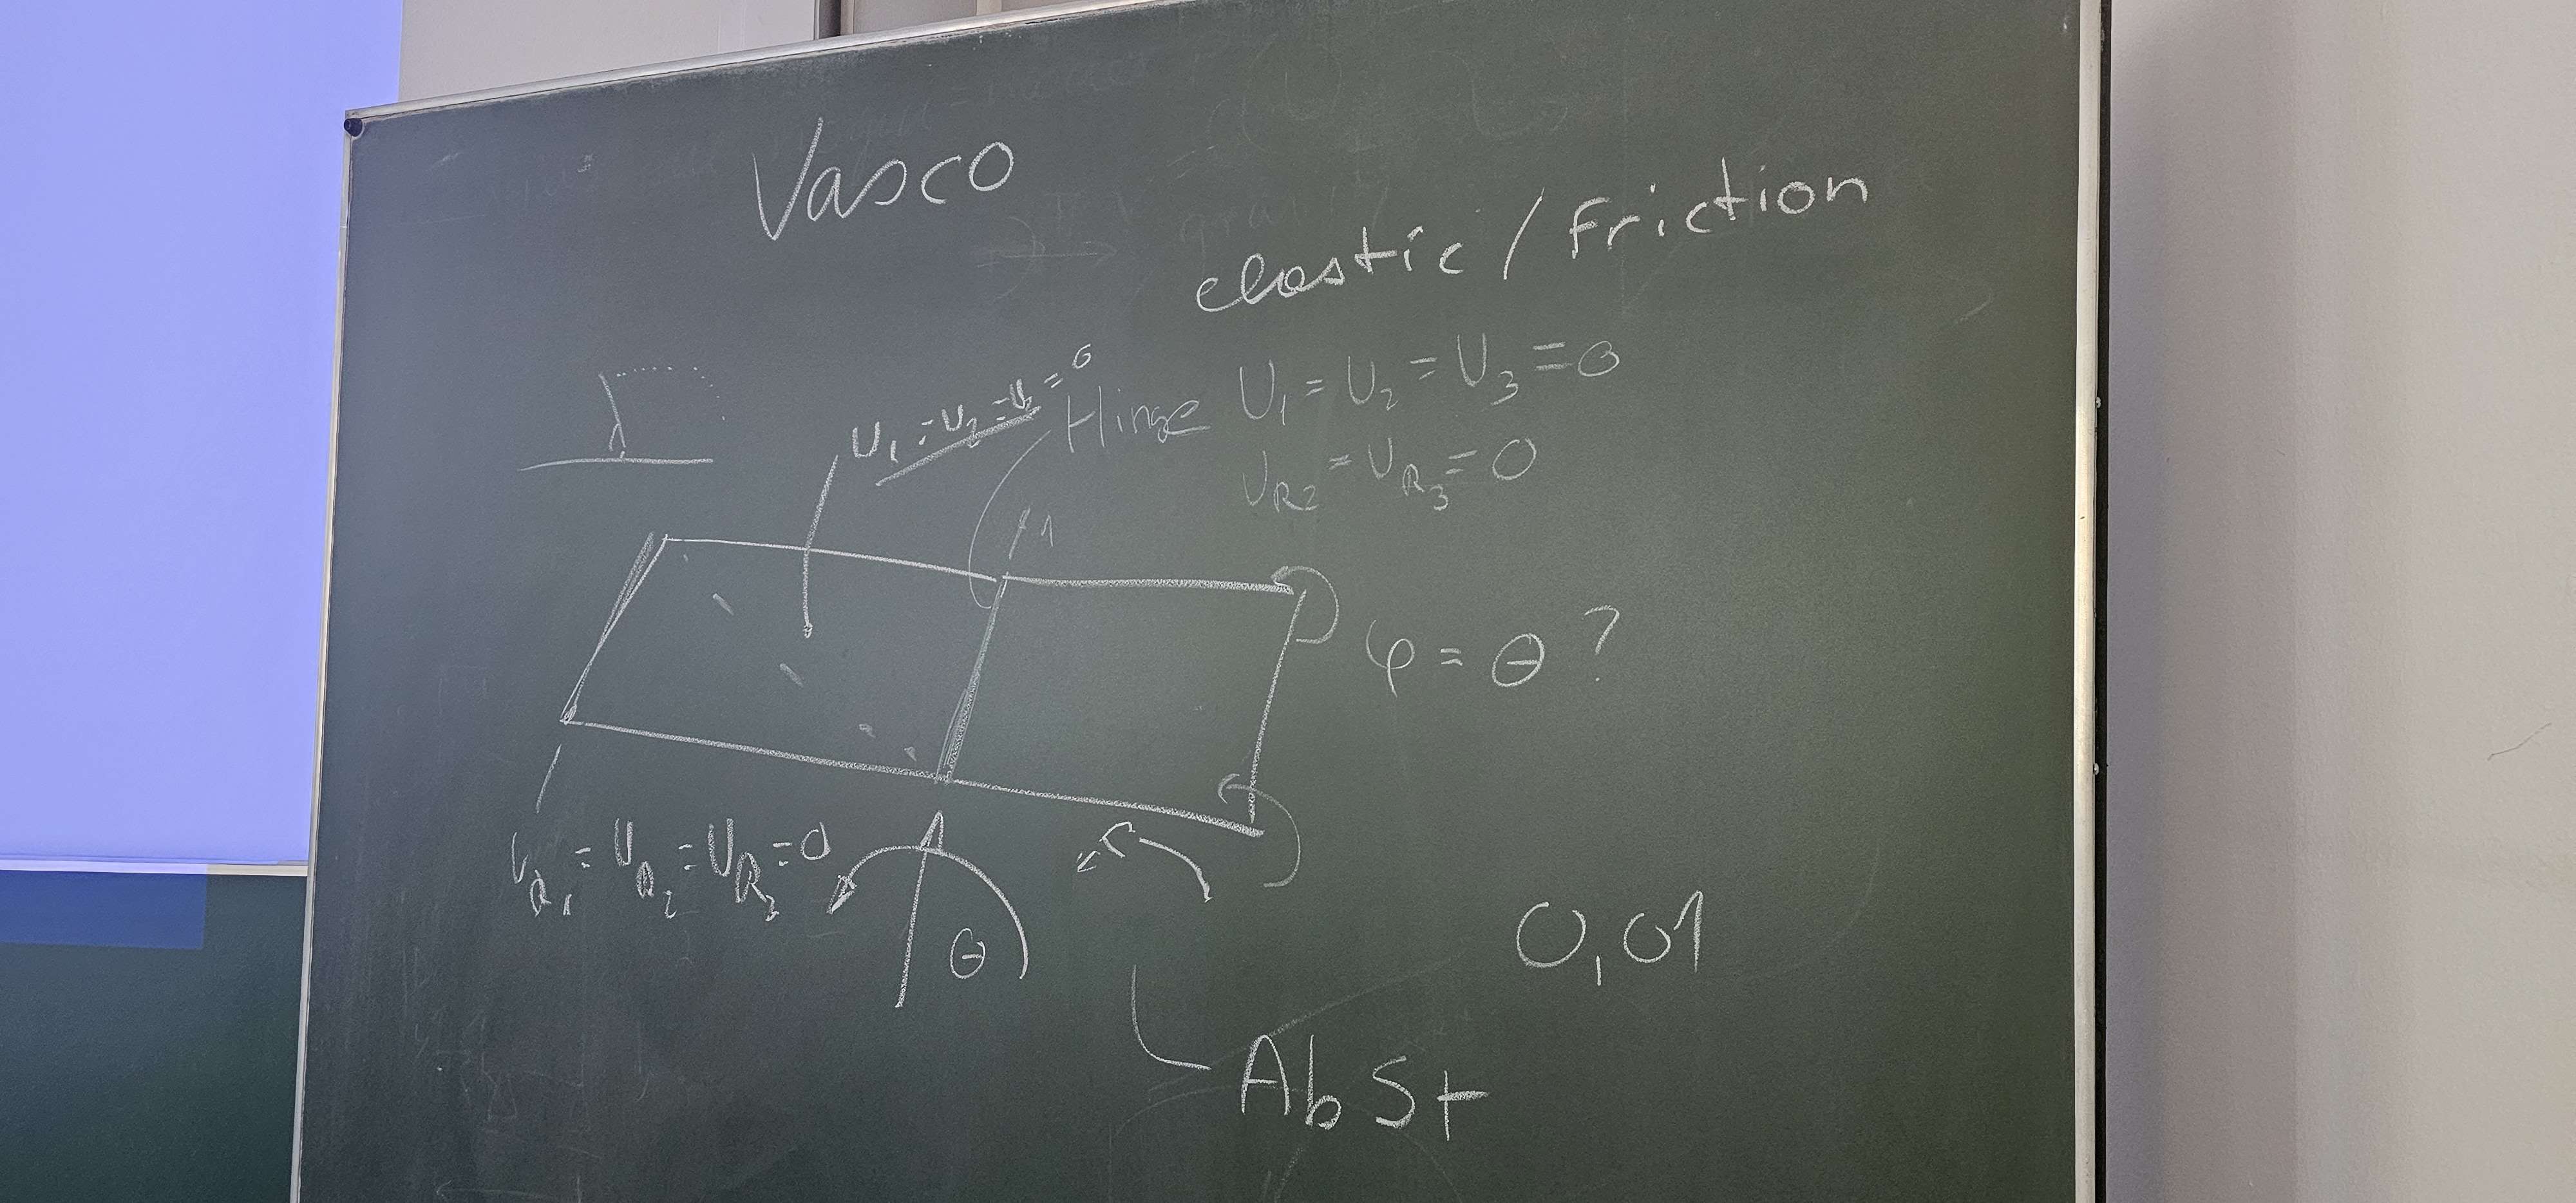 Vasco
elastic / friction
U₁ = U₂ = U₃ = 0
Hinge U₁ = U₂ = U₃ = 0
U_R2 = U_R3 = 0
1
φ = θ ?
U_R1 = U_R2 = U_R3 = 0
θ
0,01
AbSt